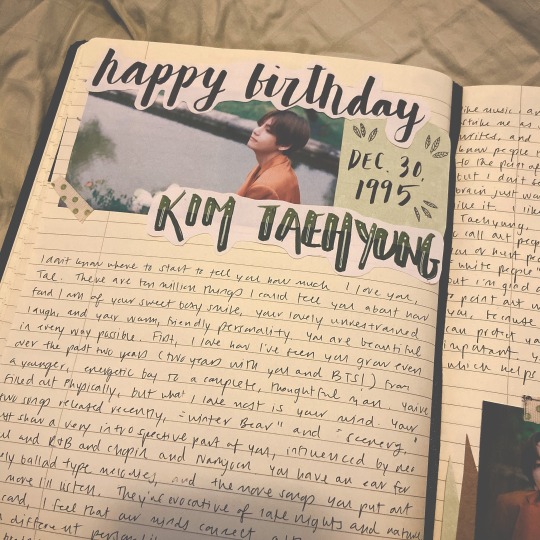 happy birthday
DEC. 30,
1995
KIM TAEHYUNG
I don't know where to start to tell you how much I love you,
Tae. There are ten million things I could tell you about how
fond I am of your sweet boxy smile, your lovely unrestrained
laugh, and your warm, friendly personality. You are beautiful
in every way possible. First, I love how I've seen you grow even
over the past two years (two years with you and BTS!) from
a younger, energetic boy to a complete, thoughtful man. You've
filled out physically, but what I love most is your mind. Your
two songs released recently, "Winter Bear" and "Scenery,"
show a very introspective part of you, influenced by neo
soul and R&B and Chopin and Namjoon. You have an ear for
ballad type melodies, and the more songs you put out
more I'll listen. They're evocative of late nights and
I feel that our minds connect
different
music, and
me as
writes, and
know people
to the point of
but I don't
brain just
like it. I
Taehyung.
call out people
or hurt
white people"
but I'm good
to point out
you, because
can protect
important. Y
which helps